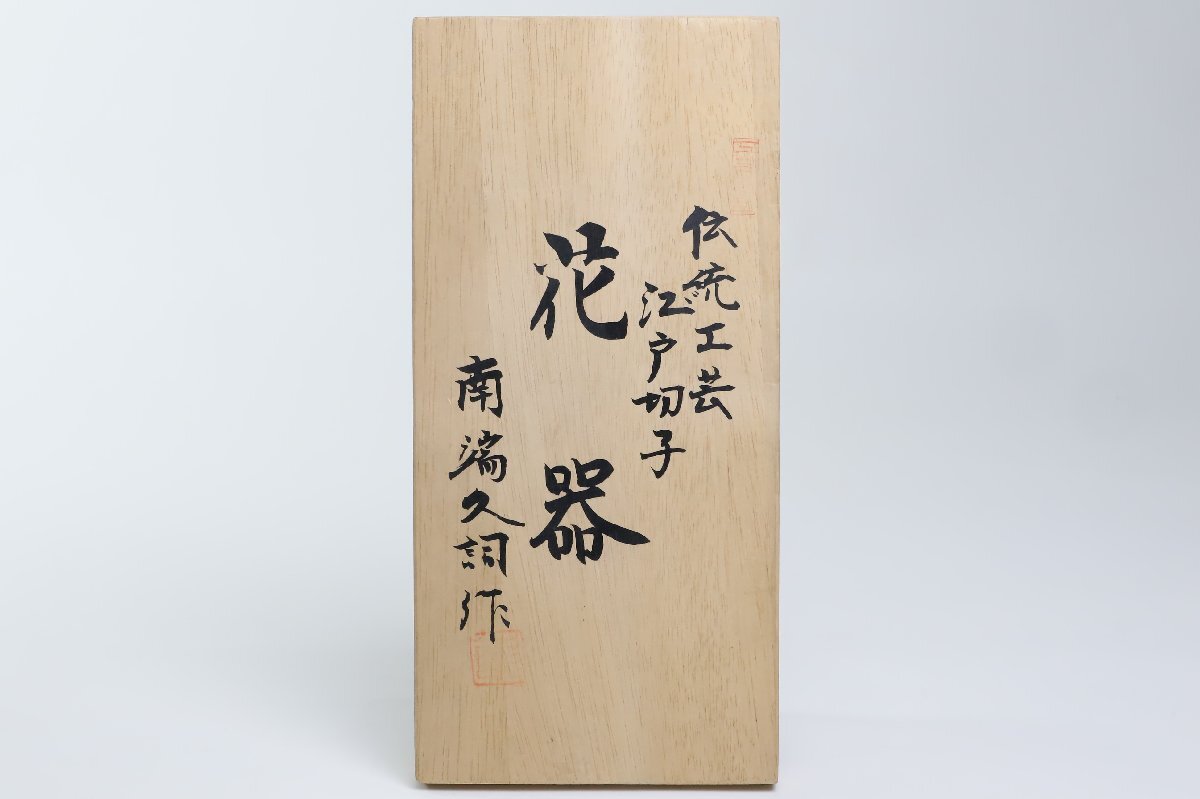 伝統工芸
江戸切子
花器
南端久詞作